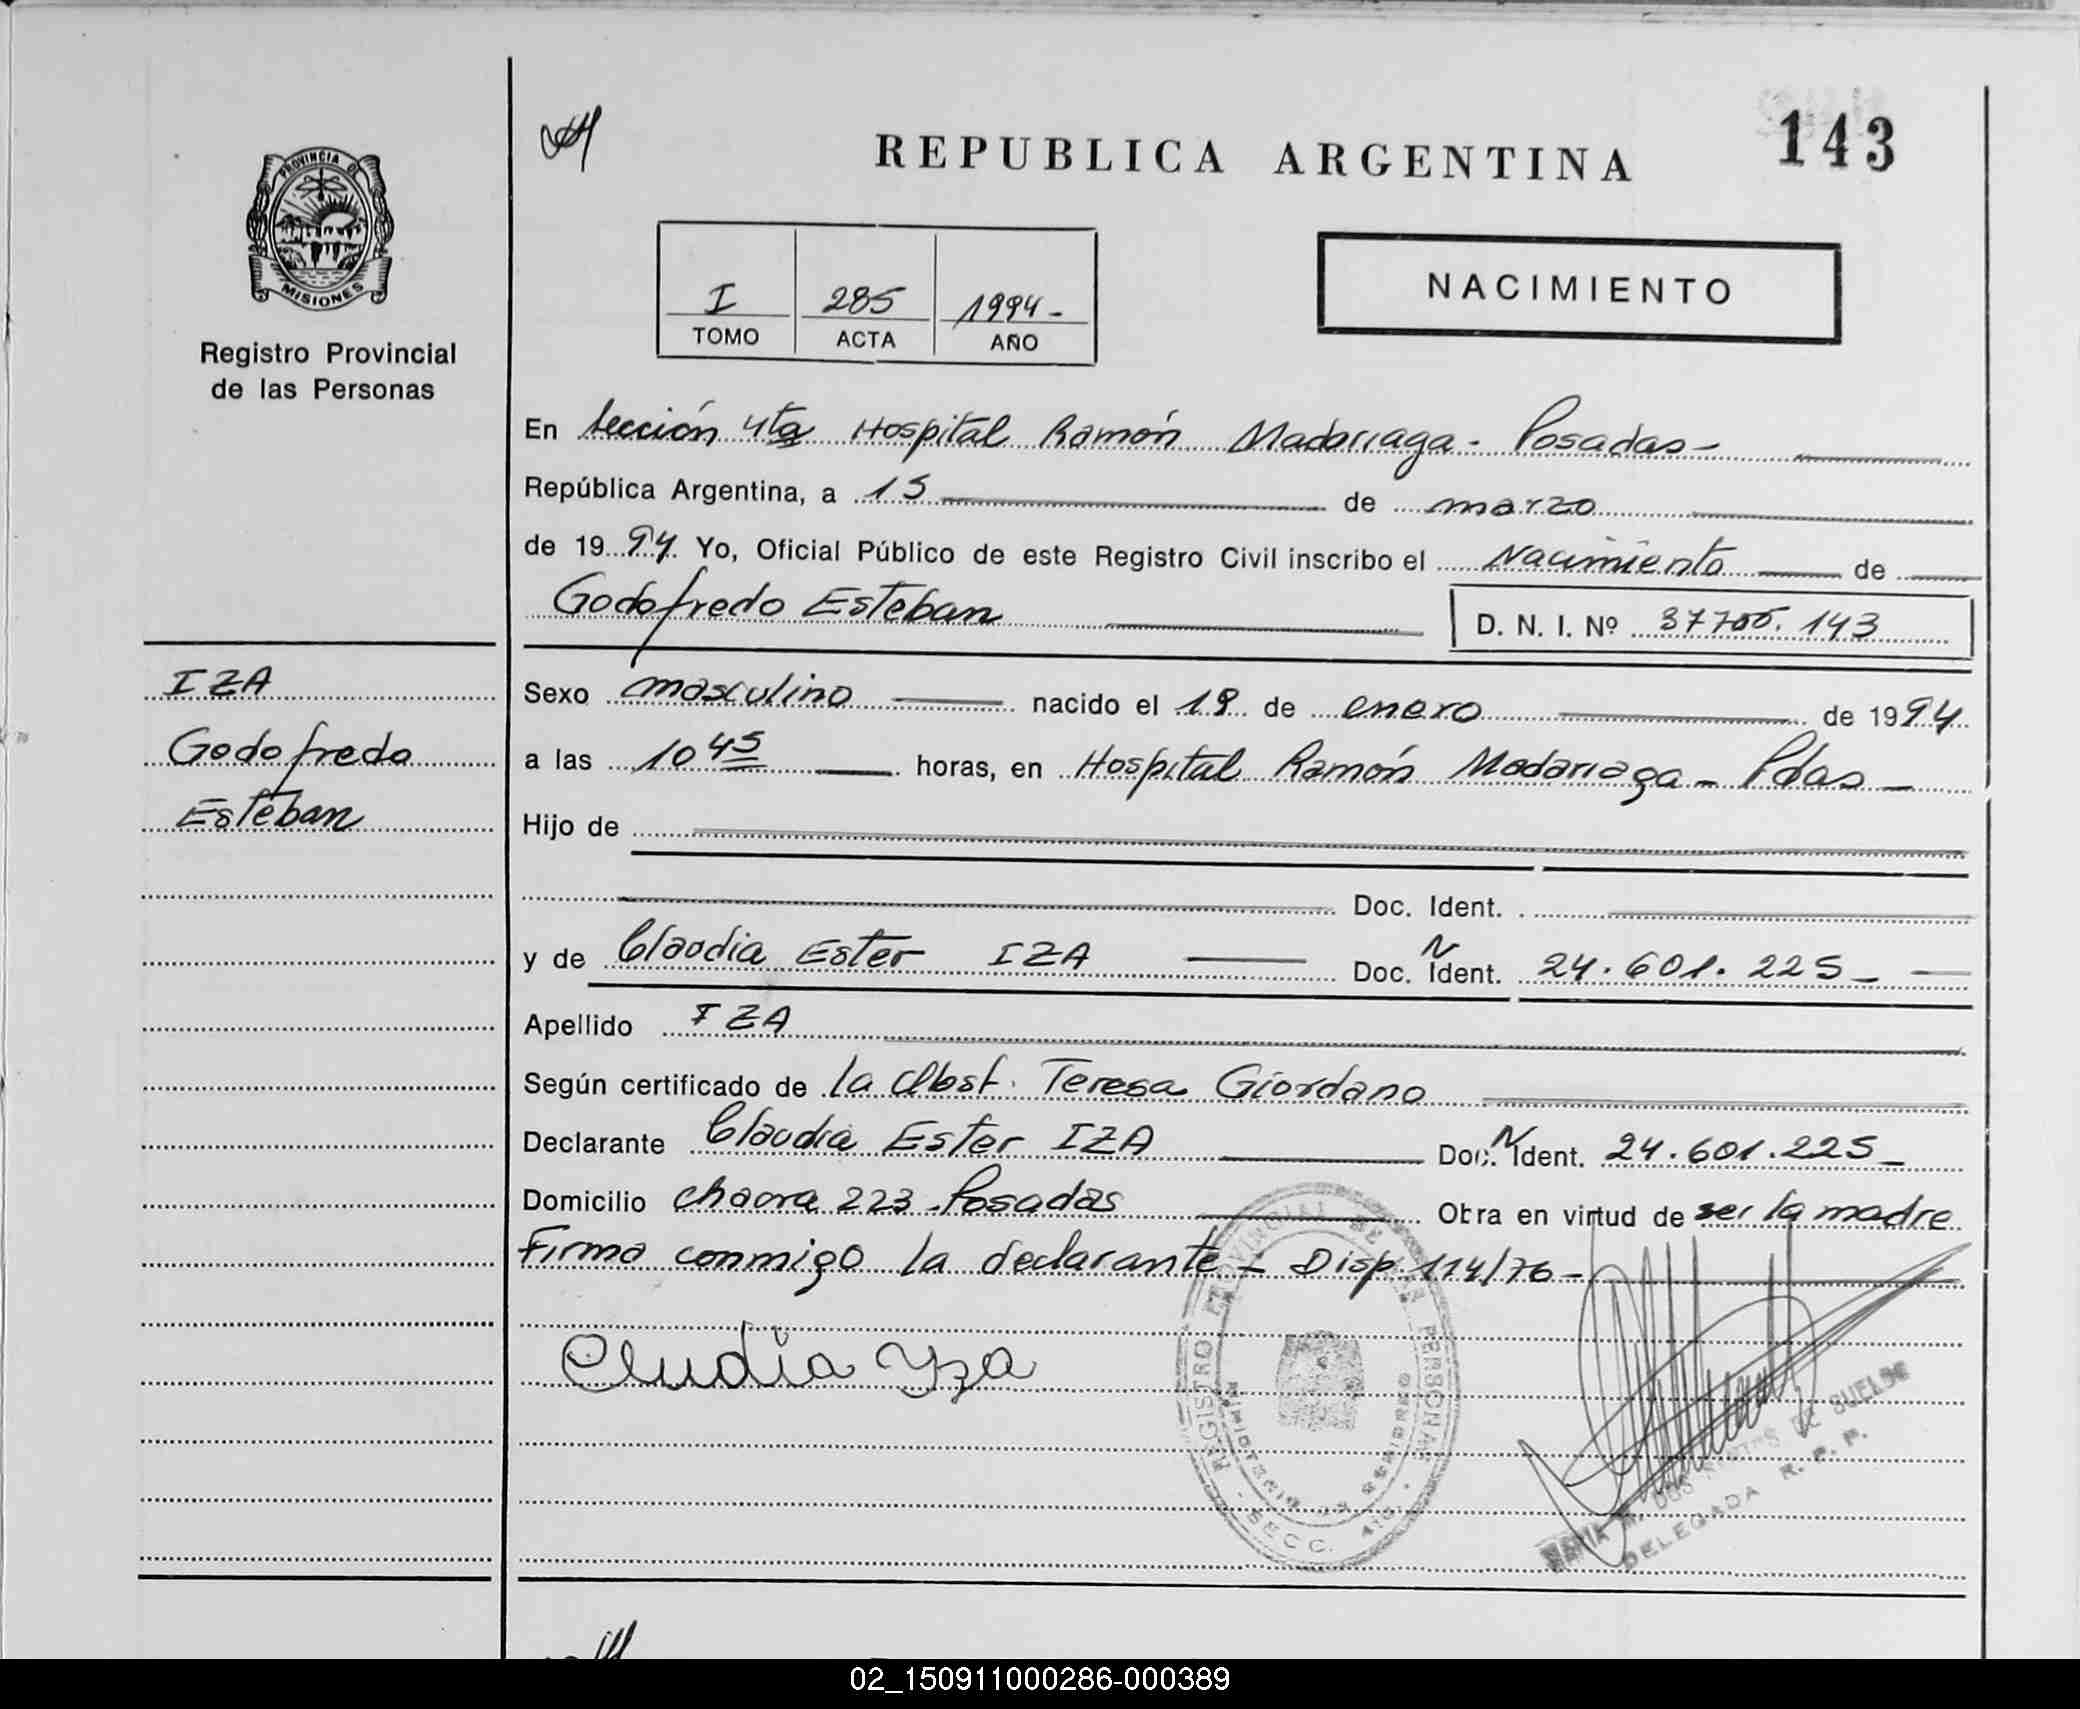 143
REPUBLICA ARGENTINA
PROVINCIA DE
MISIONES
Registro Provincial
de las Personas
NACIMIENTO
I 285 1994-
TOMO ACTA AÑO
En Sección 4ta Hospital Ramón Madariaga - Posadas -
República Argentina, a 15 de marzo
de 1994 Yo, Oficial Público de este Registro Civil inscribo el Nacimiento de
Godofredo Esteban D. N. I. Nº 143
IZA
Godofredo
Esteban
Sexo masculino nacido el 19 de enero de 1994
a las 10 45 horas, en Hospital Ramón Madariaga - Pdas -
Hijo de
Doc. Ident.
y de Claudia Ester IZA Doc. N Ident. 24.601.225 -
Apellido IZA
Según certificado de la Obst. Teresa Giordano
Declarante Claudia Ester IZA Doc. N Ident. 24.601.225 -
Domicilio chacra 223 - Posadas Obra en virtud de ser la madre
Firma conmigo la declarante - Disp. 114/76 -
Cludia Yza
REGISTRO PROVINCIAL DE LAS PERSONAS
MINISTERIO DE GOBIERNO
SECC. 4ta.
DOS SANTOS DE SUELDO
DELEGADA R. P. P.
02_150911000286-000389